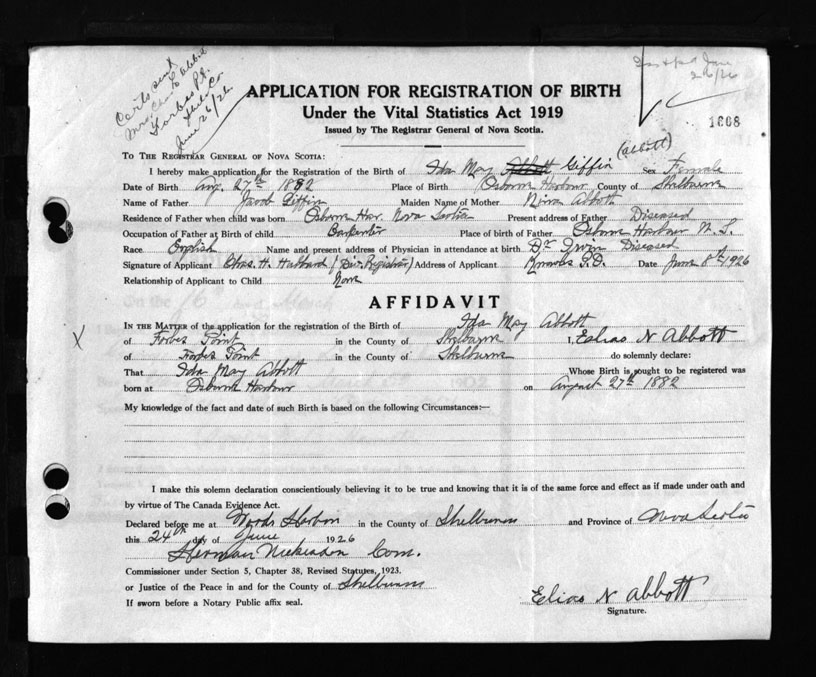 Certs sent
Mrs. Chas E Abbott
Forbes Pt.
Shel. Co.
June 26/26
26/26
APPLICATION FOR REGISTRATION OF BIRTH
Under the Vital Statistics Act 1919
Issued by The Registrar General of Nova Scotia.
1808
(Abbott)
TO THE REGISTRAR GENERAL OF NOVA SCOTIA:
I hereby make application for the Registration of the Birth of Ida May Abbott Giffin Sex Female
Date of Birth Aug. 27th 1882 Place of Birth Osborne Harbour County of Shelburne
Name of Father Jacob Giffin Maiden Name of Mother Nina Abbott
Residence of Father when child was born Osborne Har. Nova Scotia Present address of Father Diseased
Occupation of Father at Birth of child Carpenter Place of birth of Father Osborne Harbour N.S.
Race English Name and present address of Physician in attendance at birth Dr Irwin Diseased
Signature of Applicant Chas. H. Hubbard (Div. Registrar) Address of Applicant P.O. Date June 8th 1926
Relationship of Applicant to Child None
AFFIDAVIT
IN THE MATTER of the application for the registration of the Birth of Ida May Abbott
X of Forbes Point in the County of Shelburne I, Elias N Abbott
of Forbes Point in the County of Shelburne do solemnly declare:
That Ida May Abbott Whose Birth is sought to be registered was
born at Osborne Harbour on August 27th 1882
My knowledge of the fact and date of such Birth is based on the following Circumstances:—
I make this solemn declaration conscientiously believing it to be true and knowing that it is of the same force and effect as if made under oath and
by virtue of The Canada Evidence Act.
Declared before me at Woods Harbor in the County of Shelburne and Province of Nova Scotia
this 24th day of June 1926
Herman Nickerson Com.
Commissioner under Section 5, Chapter 38, Revised Statutes, 1923.
or Justice of the Peace in and for the County of Shelburne
If sworn before a Notary Public affix seal.
Elias N Abbott
Signature.